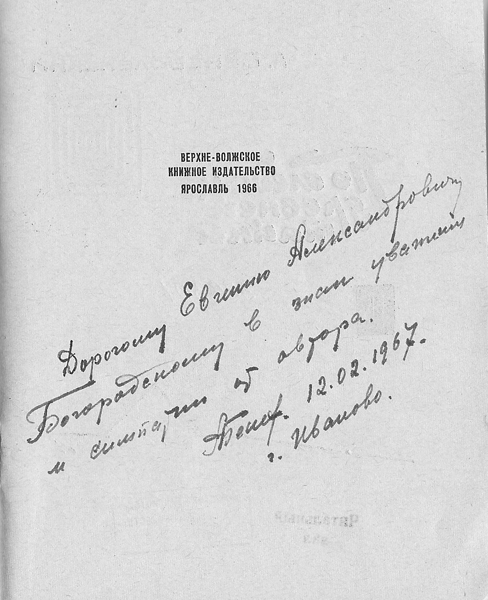 ВЕРХНЕ-ВОЛЖСКОЕ
КНИЖНОЕ ИЗДАТЕЛЬСТВО
ЯРОСЛАВЛЬ 1966
Дорогому Евгению Александровичу
Богородскому в знак уважения
и симпатии от автора.
12.02.1967.
г. Иваново.